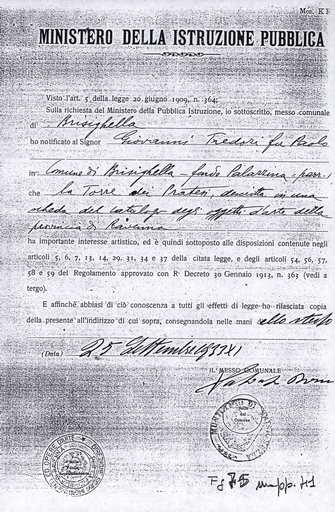 Mon. K
MINISTERO DELLA ISTRUZIONE PUBBLICA
Visto l'art. 5 della legge 20 giugno 1909, n. 364;
Sulla richiesta del Ministero della Pubblica Istruzione, io sottoscritto, messo comunale
di Brisighella
ho notificato al Signor Giovanni Tredori fu Paolo
in Comune di Brisighella - fondo Palazzina - parr.
che la Torre dei Pratesi, descritta in una
scheda del catalogo degli oggetti d'arte della
provincia di Ravenna
ha importante interesse artistico, ed è quindi sottoposto alle disposizioni contenute negli
articoli 5, 6, 7, 13, 14, 29, 31, 34 e 37 della citata legge, e degli articoli 54, 56, 57,
58 e 59 del Regolamento approvato con R° Decreto 30 Gennaio 1913, n. 363 (vedi a
tergo).
E affinchè abbiasi di ciò conoscenza a tutti gli effetti di legge ho rilasciata copia
della presente all'indirizzo di cui sopra, consegnandola nelle mani allo stesso
(Data) 25 Settembre 1933 XI
IL MESSO COMUNALE
Fg 75 mapp.